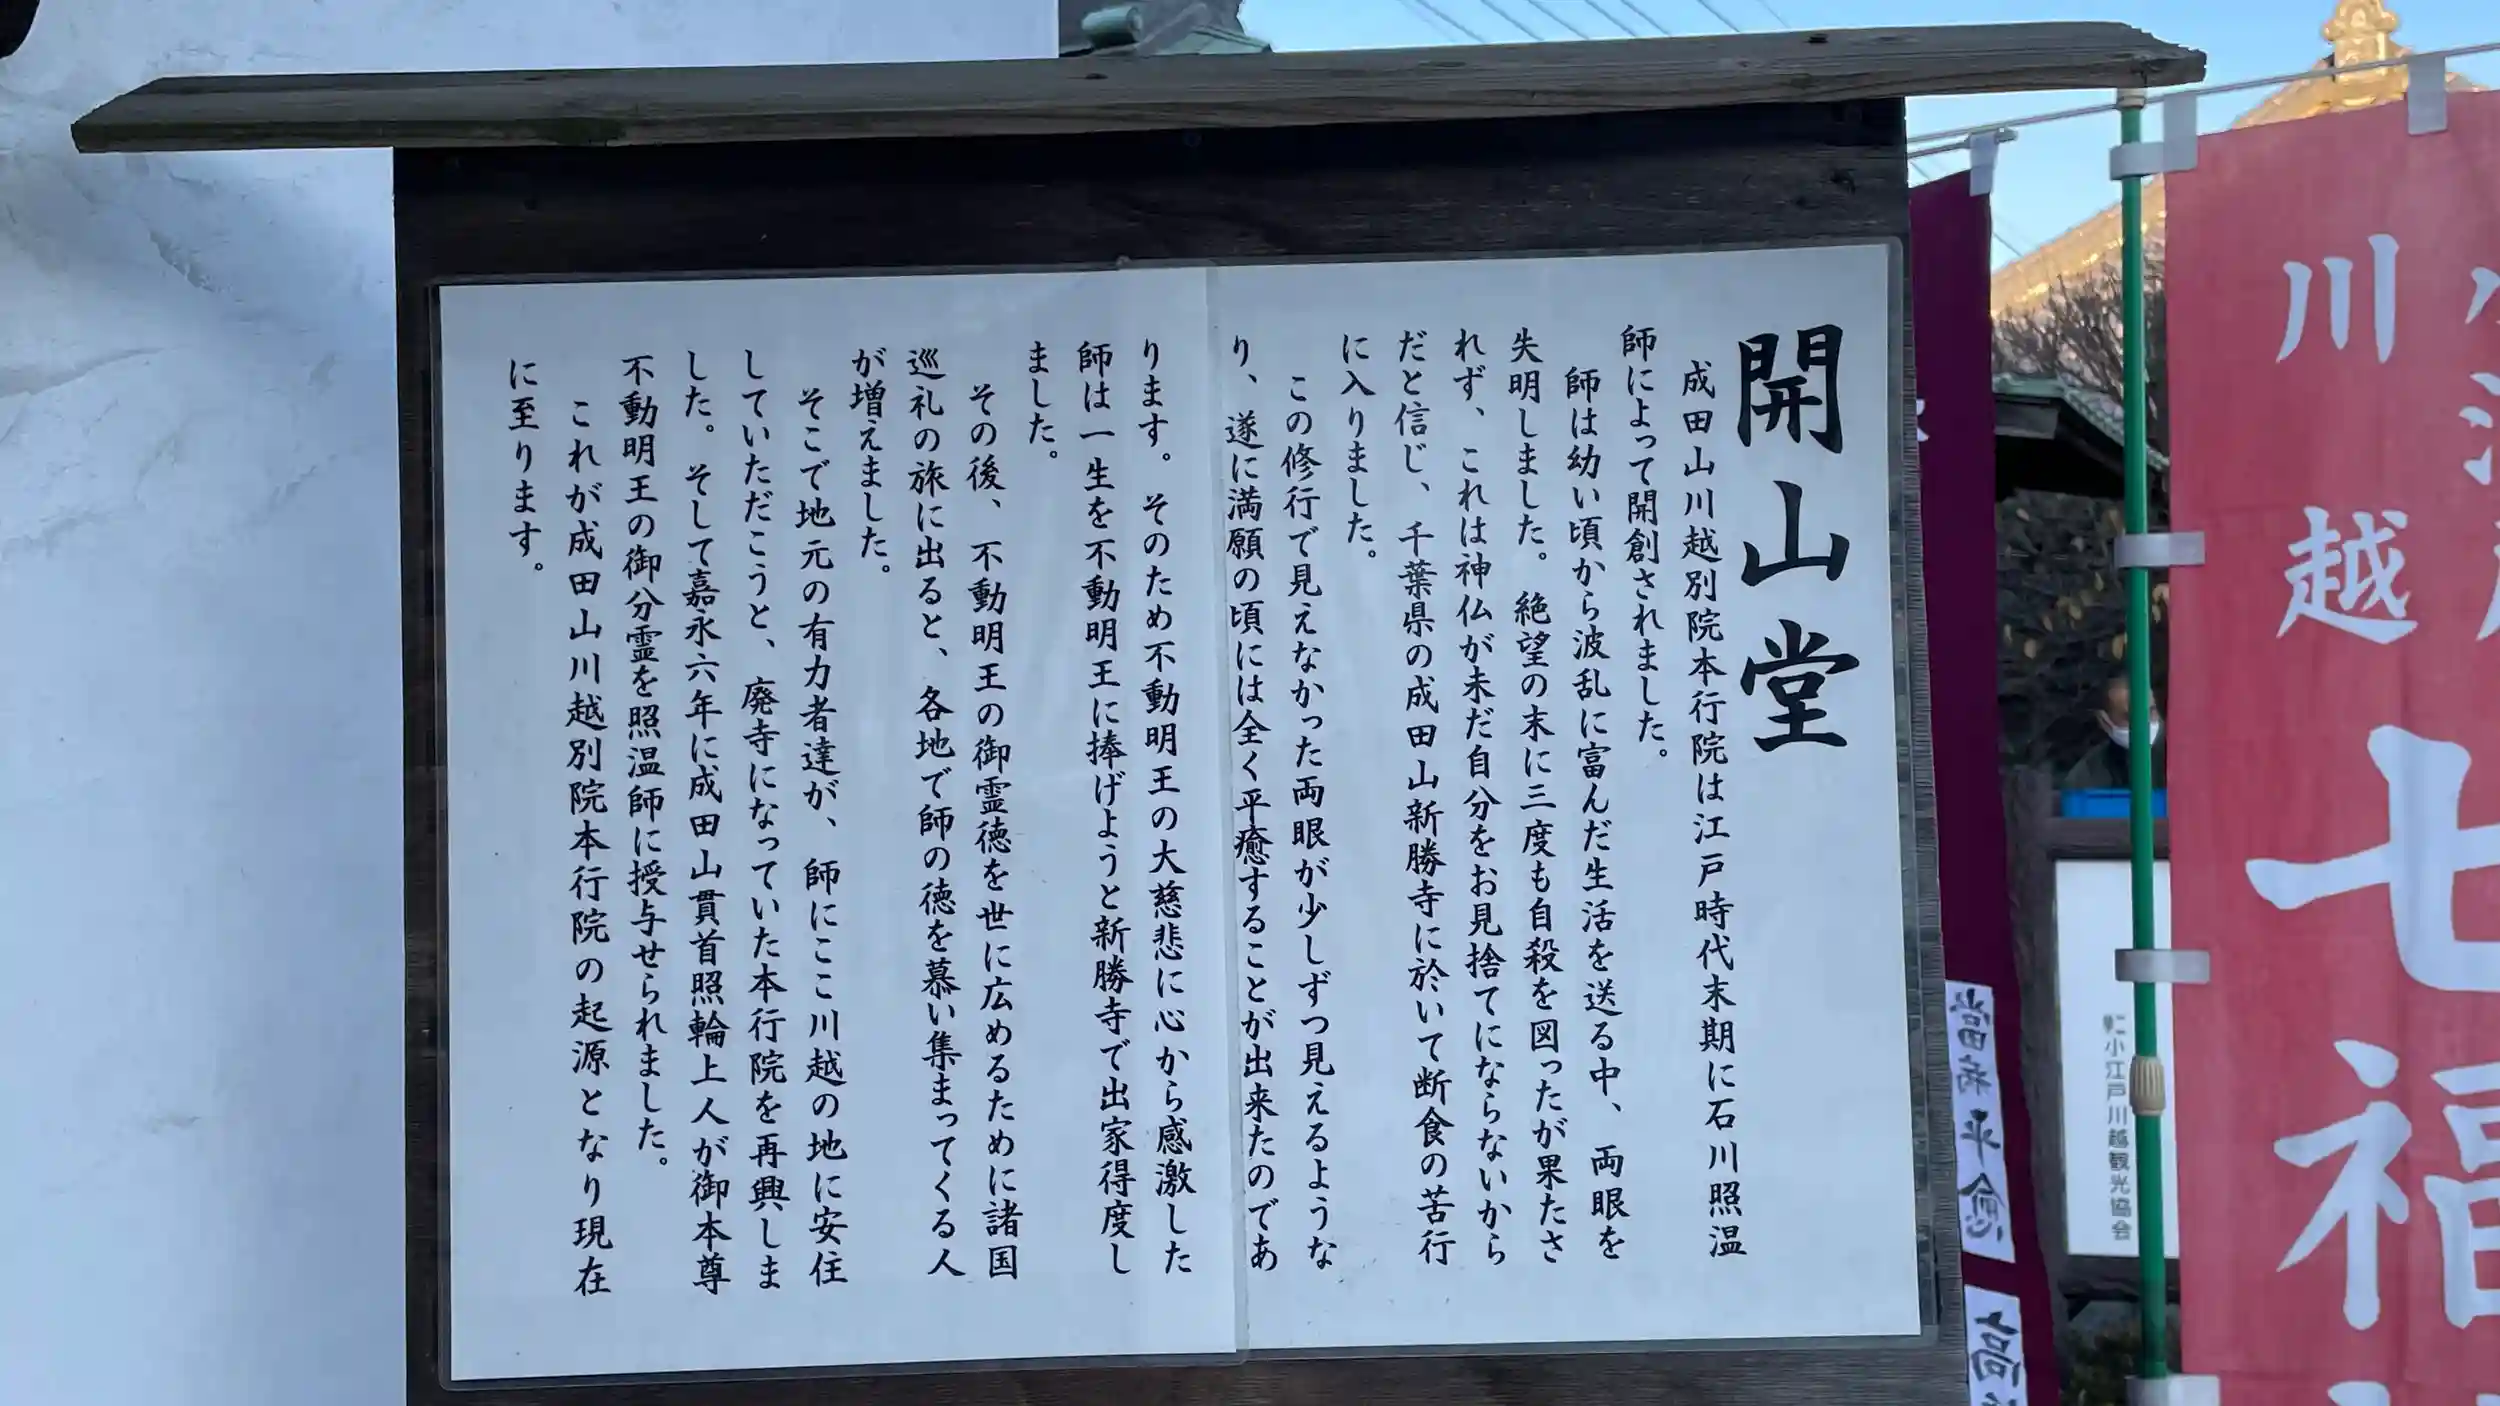 開山堂
成田山川越別院本行院は江戸時代末期に石川照温
師によって開創されました。
師は幼い頃から波乱に富んだ生活を送る中、両眼を
失明しました。絶望の末に三度も自殺を図ったが果たさ
れず、これは神仏が未だ自分をお見捨てにならないから
だと信じ、千葉県の成田山新勝寺に於いて断食の苦行
に入りました。
この修行で見えなかった両眼が少しずつ見えるようにな
り、遂に満願の頃には全く平癒することが出来たのであ
ります。そのため不動明王の大慈悲に心から感激した
師は一生を不動明王に捧げようと新勝寺で出家得度し
ました。
その後、不動明王の御霊徳を世に広めるために諸国
巡礼の旅に出ると、各地で師の徳を慕い集まってくる人
が増えました。
そこで地元の有力者達が、師にここ川越の地に安住
していただこうと、廃寺になっていた本行院を再興しま
した。そして嘉永六年に成田山貫首照輪上人が御本尊
不動明王の御分霊を照温師に授与せられました。
これが成田山川越別院本行院の起源となり現在
に至ります。
川越
七福
当病平癒
小江戸川越観光協会